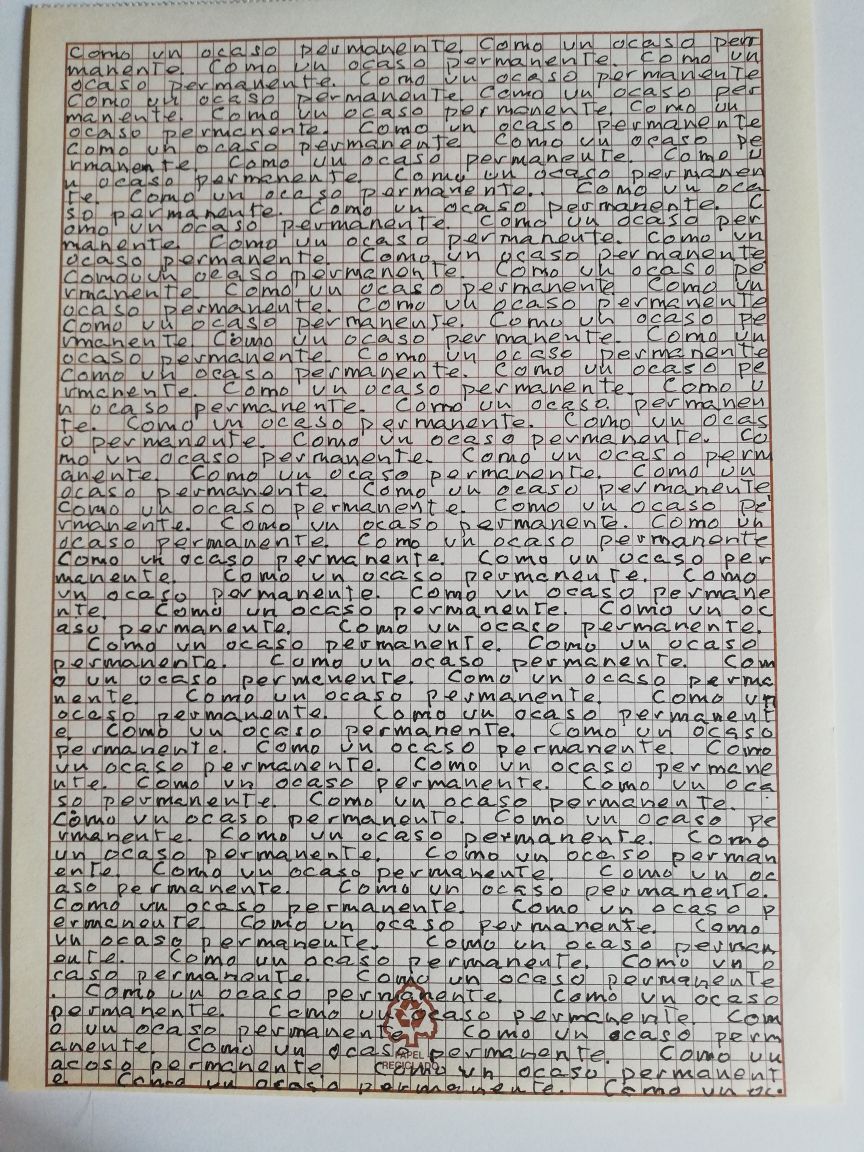 Como un ocaso permanente. Como un ocaso perr
manente. Como un ocaso permanente. Como un
ocaso permanente. Como un ocaso permanente
Como un ocaso permanente Como un ocaso per
manente. Como un ocaso permonente. Como un
ocaso permcnente. Como un ocaso permanente
Como un ocaso permanente Como un ocaso pe
rmanente. Como un ocaso permanente. Como u
n ocaso permanente. Como un ocaso permanen
te. Como un ocaso permanente. Como un oca
so permanente. Como un ocaso permanente. C
omo un ocaso permanente. Como un ocaso per
manente. Como un ocaso permanente. Como un
ocaso permanente. Como un ocaso permanente
Como un ocaso permanente. Como un ocaso pe
rmanente. Como un ocaso permanente Como un
ocaso permanente. Como un ocaso permanente
Como un ocaso permanente. Como un ocaso pe
rmanente Como un ocaso permanente. Como un
ocaso permanente. Como un ocaso permanente
Como un ocaso permanente. Como un ocaso pe
rmcnente. Como un ocaso permanente. Como u
n ocaso permanente. Como un ocaso. permanen
te. Como un ocaso permanente. Como un ocas
o permanente. Como un ocaso permanente. Co
mo un ocaso permanente. Como un ocaso perm
anente. Como un ocaso permanente. Como un
ocaso permanente. Como un ocaso permanente
Como un ocaso permanente. Como un ocaso pe
rmanente. Como un ocaso permanente. Como un
ocaso permanente. Como un ocaso permanente
Como un ocaso permanente. Como un ocaso per
manente. Como un ocaso permcnente. Como
un ocaso permanente. Como un ocaso permane
nte. Como un ocaso permanente. Como un oc
aso permanente. Como un ocaso permanente.
Como un ocaso permanente. Como un ocaso
permanente. Como un ocaso permanente. Com
o un ocaso permcnente. Como un ocaso permc
nente. Como un ocaso permanente. Como un
ocaso permanente. Como un ocaso permanent
e. Como un ocaso permanente. Como un ocaso
permanente. Como un ocaso permanente. Como
un ocaso permanente. Como un ocaso permcne
nte. Como un ocaso permanente. Como un oca
so permanente. Como un ocaso permanente.
Como un ocaso permanente. Como un ocaso pe
rmanente. Como un ocaso permanente. Como
un ocaso permanente. Como un ocaso perman
ente. Como un ocaso permanente. Como un oc
aso permanente. Como un ocaso permanente.
Como un ocaso permanente. Como un ocaso p
ermcnente. Como un ocaso permanente. Como
un ocaso permanente. Como un ocaso perman
ente. Como un ocaso permanente. Como un o
caso permanente. Como un ocaso permanente
. Como un ocaso permanente. Como un ocaso
permanente. Como un ocaso permcnente. Com
o un ocaso permanente. Como un ocaso perm
anente. Como un ocaso permanente. Como un
acoso permanente. Como un ocaso permanent
e. Como un ocaso permanente. Como un oc.
PAPEL
RECICLADO